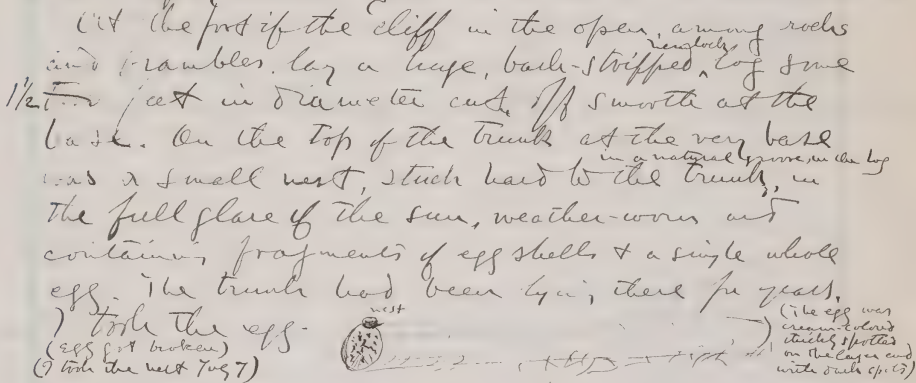 At the foot if the cliff in the open, among rocks
and brambles lay a huge, bark-stripped, hemlock log some
1½ feet in diameter cut off smooth at the
base. On the top of the trunk at the very base
in a natural groove, in the log
was a small nest, stuck hard to the trunk, in
the full glare of the sun, weather-worn and
containing fragments of egg shells & a single whole
egg. The trunk had been lying there for years.
I took the egg.
(egg got broken)
(I took the nest Aug 7)
nest
(The egg was
cream-colored
thickly spotted
on the larger end
with dark spots)